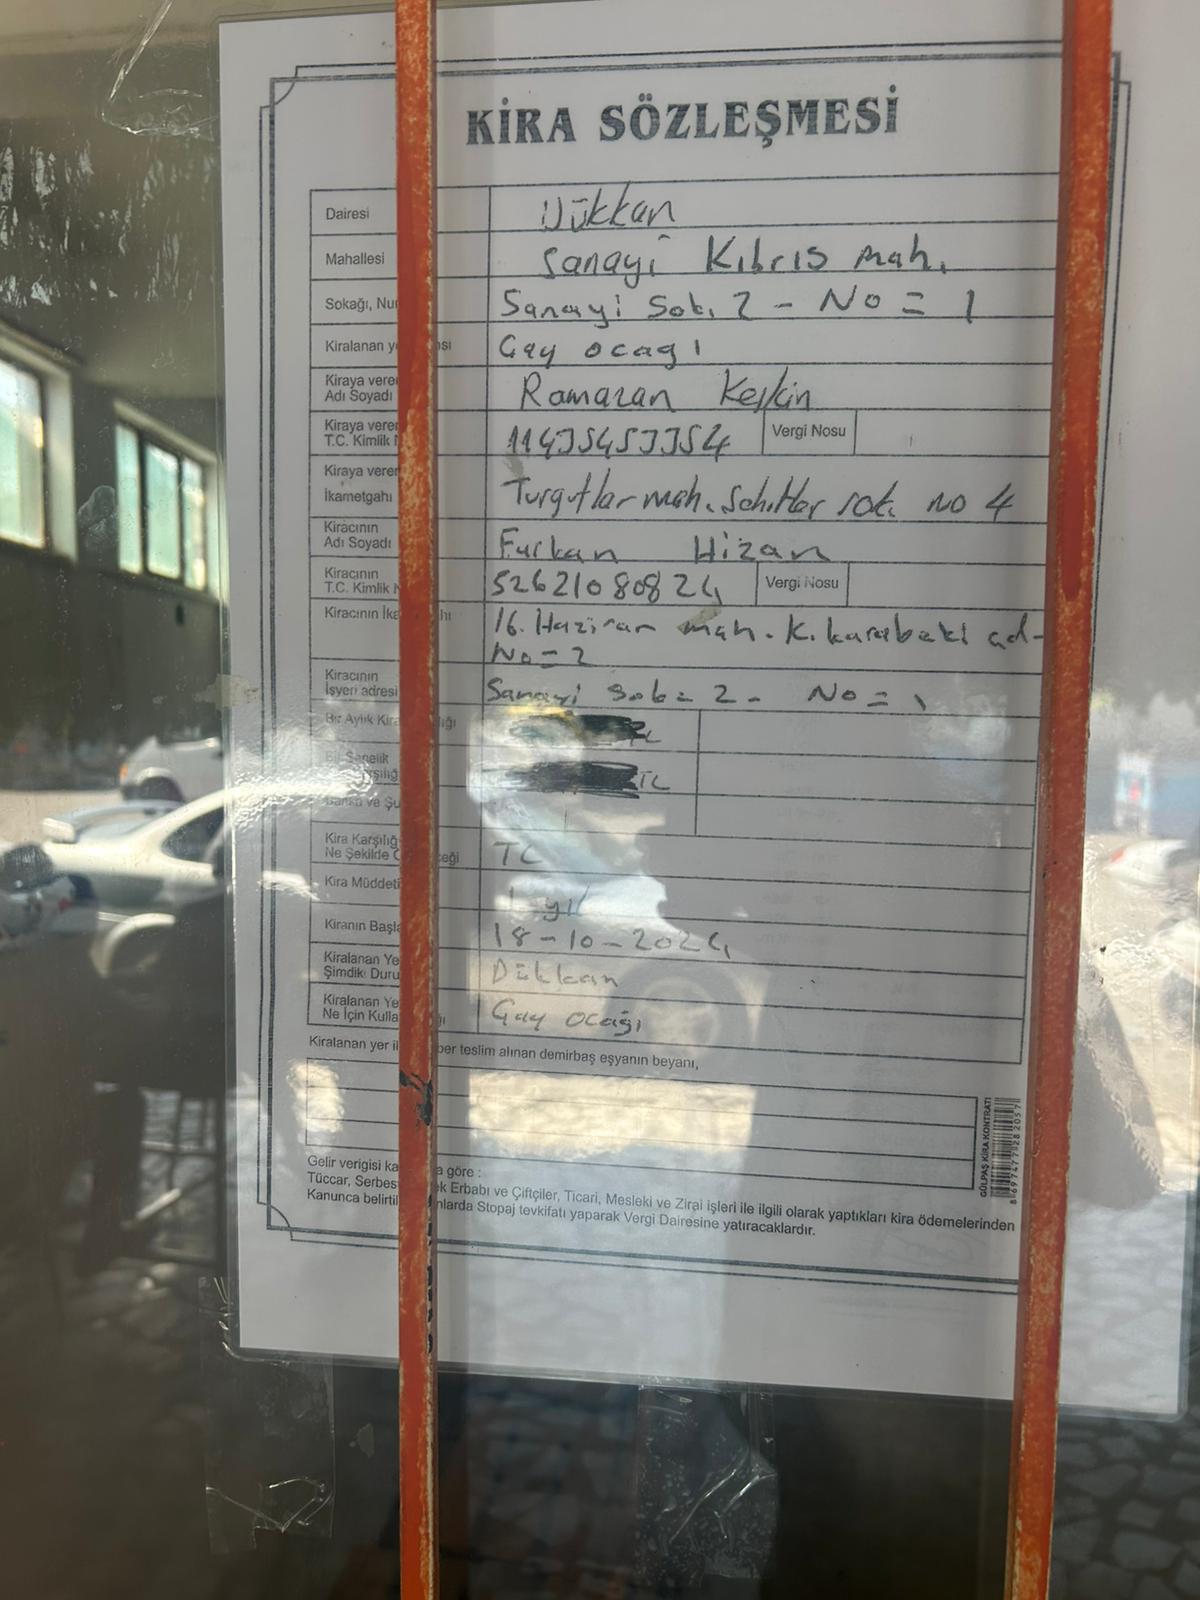 KİRA SÖZLEŞMESİ
Dairesi Dükkan
Mahallesi Sanayi Kıbrıs mah.
Sokağı, Nu Sanayi Sok. 2 - No = 1
Kiralanan ye sı Çay ocağı
Kiraya vere
Adı Soyadı Ramazan Keskin
Kiraya vere
T.C. Kimlik Vergi Nosu
Kiraya vere
İkametgahı Turgutlar mah. Şehitler sok. no 4
Kiracının
Adı Soyadı Furkan Hizan
Kiracının
T.C. Kimlik 52621080824 Vergi Nosu
Kiracının İka hı 16. Haziran mah. K. karabekl cd-
No = 2
Kiracının
İşyeri adresi Sanayi Sok = 2 - No = 1
Bir Aylık Kira lığı TL
Bir Senelik
rşılığ TL
ve Şu
Kira Karşılığ
Ne Şekilde Ö eceği TL
Kira Müddeti 1 yıl
Kiranın Başla 18-10-2024
Kiralanan Ye
Şimdiki Duru Dükkan
Kiralanan Ye
Ne İçin Kulla ğı Çay ocağı
Kiralanan yer il ber teslim alınan demirbaş eşyanın beyanı,
GÜLPAŞ KİRA KONTRATI
8 697477 282057
Gelir verigisi ka a göre :
Tüccar, Serbes ek Erbabı ve Çiftçiler, Ticari, Mesleki ve Zirai işleri ile ilgili olarak yaptıkları kira ödemelerinden
Kanunca belirtil nlarda Stopaj tevkifatı yaparak Vergi Dairesine yatıracaklardır.